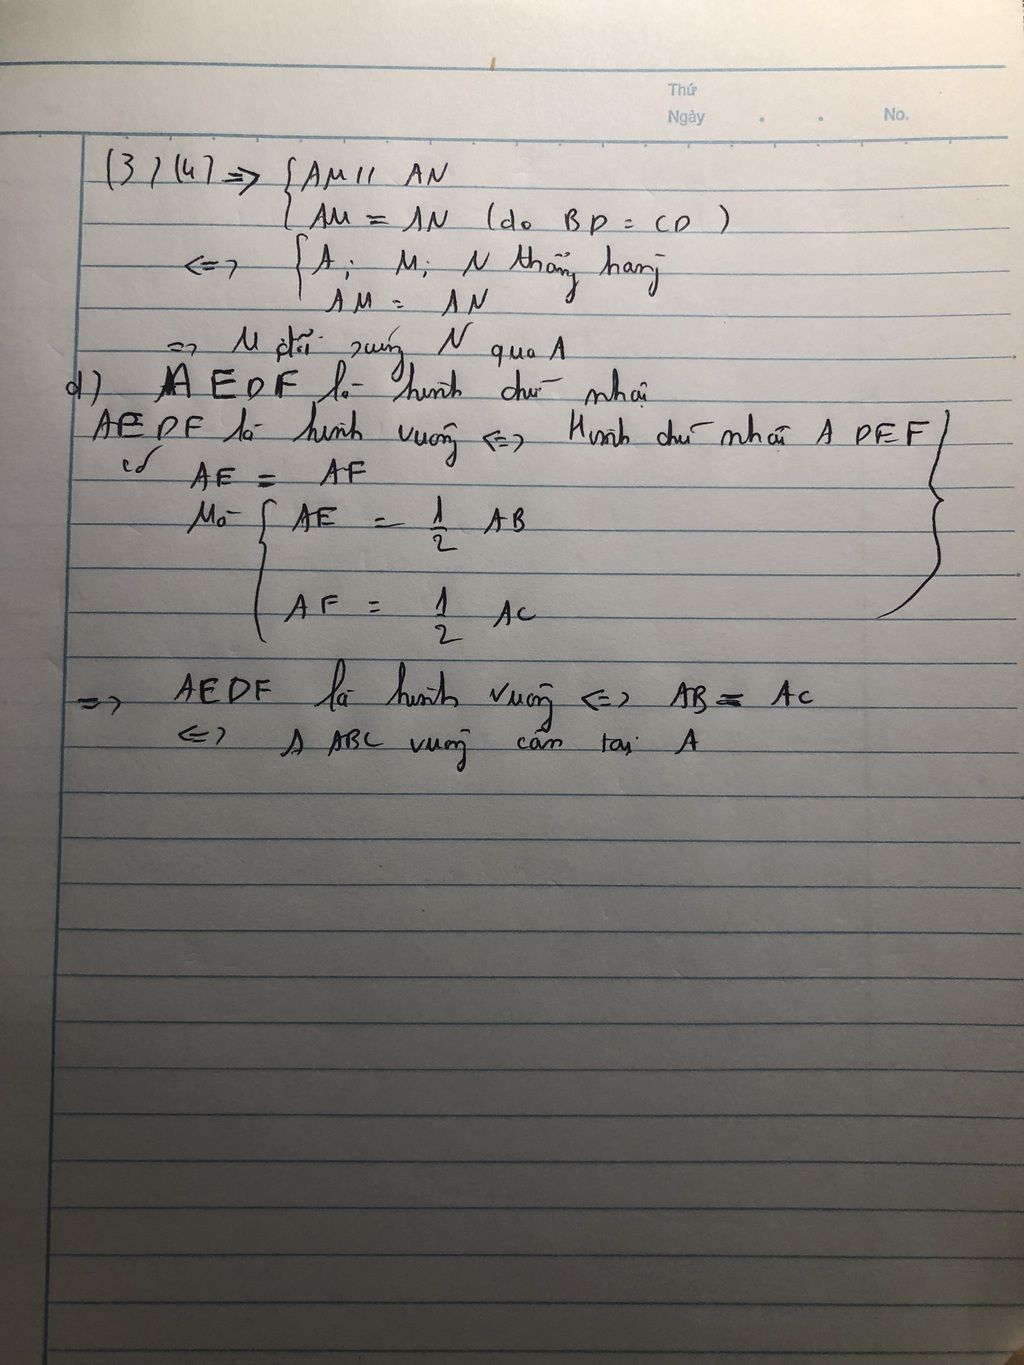 Thứ
Ngày . . No.
(3) (4) => { AM // AN
AM = AN (do BD = CD)
<=> { A; M; N thẳng hàng
AM = AN
=> M đối xứng N qua A
d) AEDF là hình chữ nhật
AEDF là hình vuông <=> Hình chữ nhật ADEF }
có AE = AF
Mà { AE = 1/2 AB
AF = 1/2 AC
=> AEDF là hình vuông <=> AB = AC
<=> Δ ABC vuông cân tại A